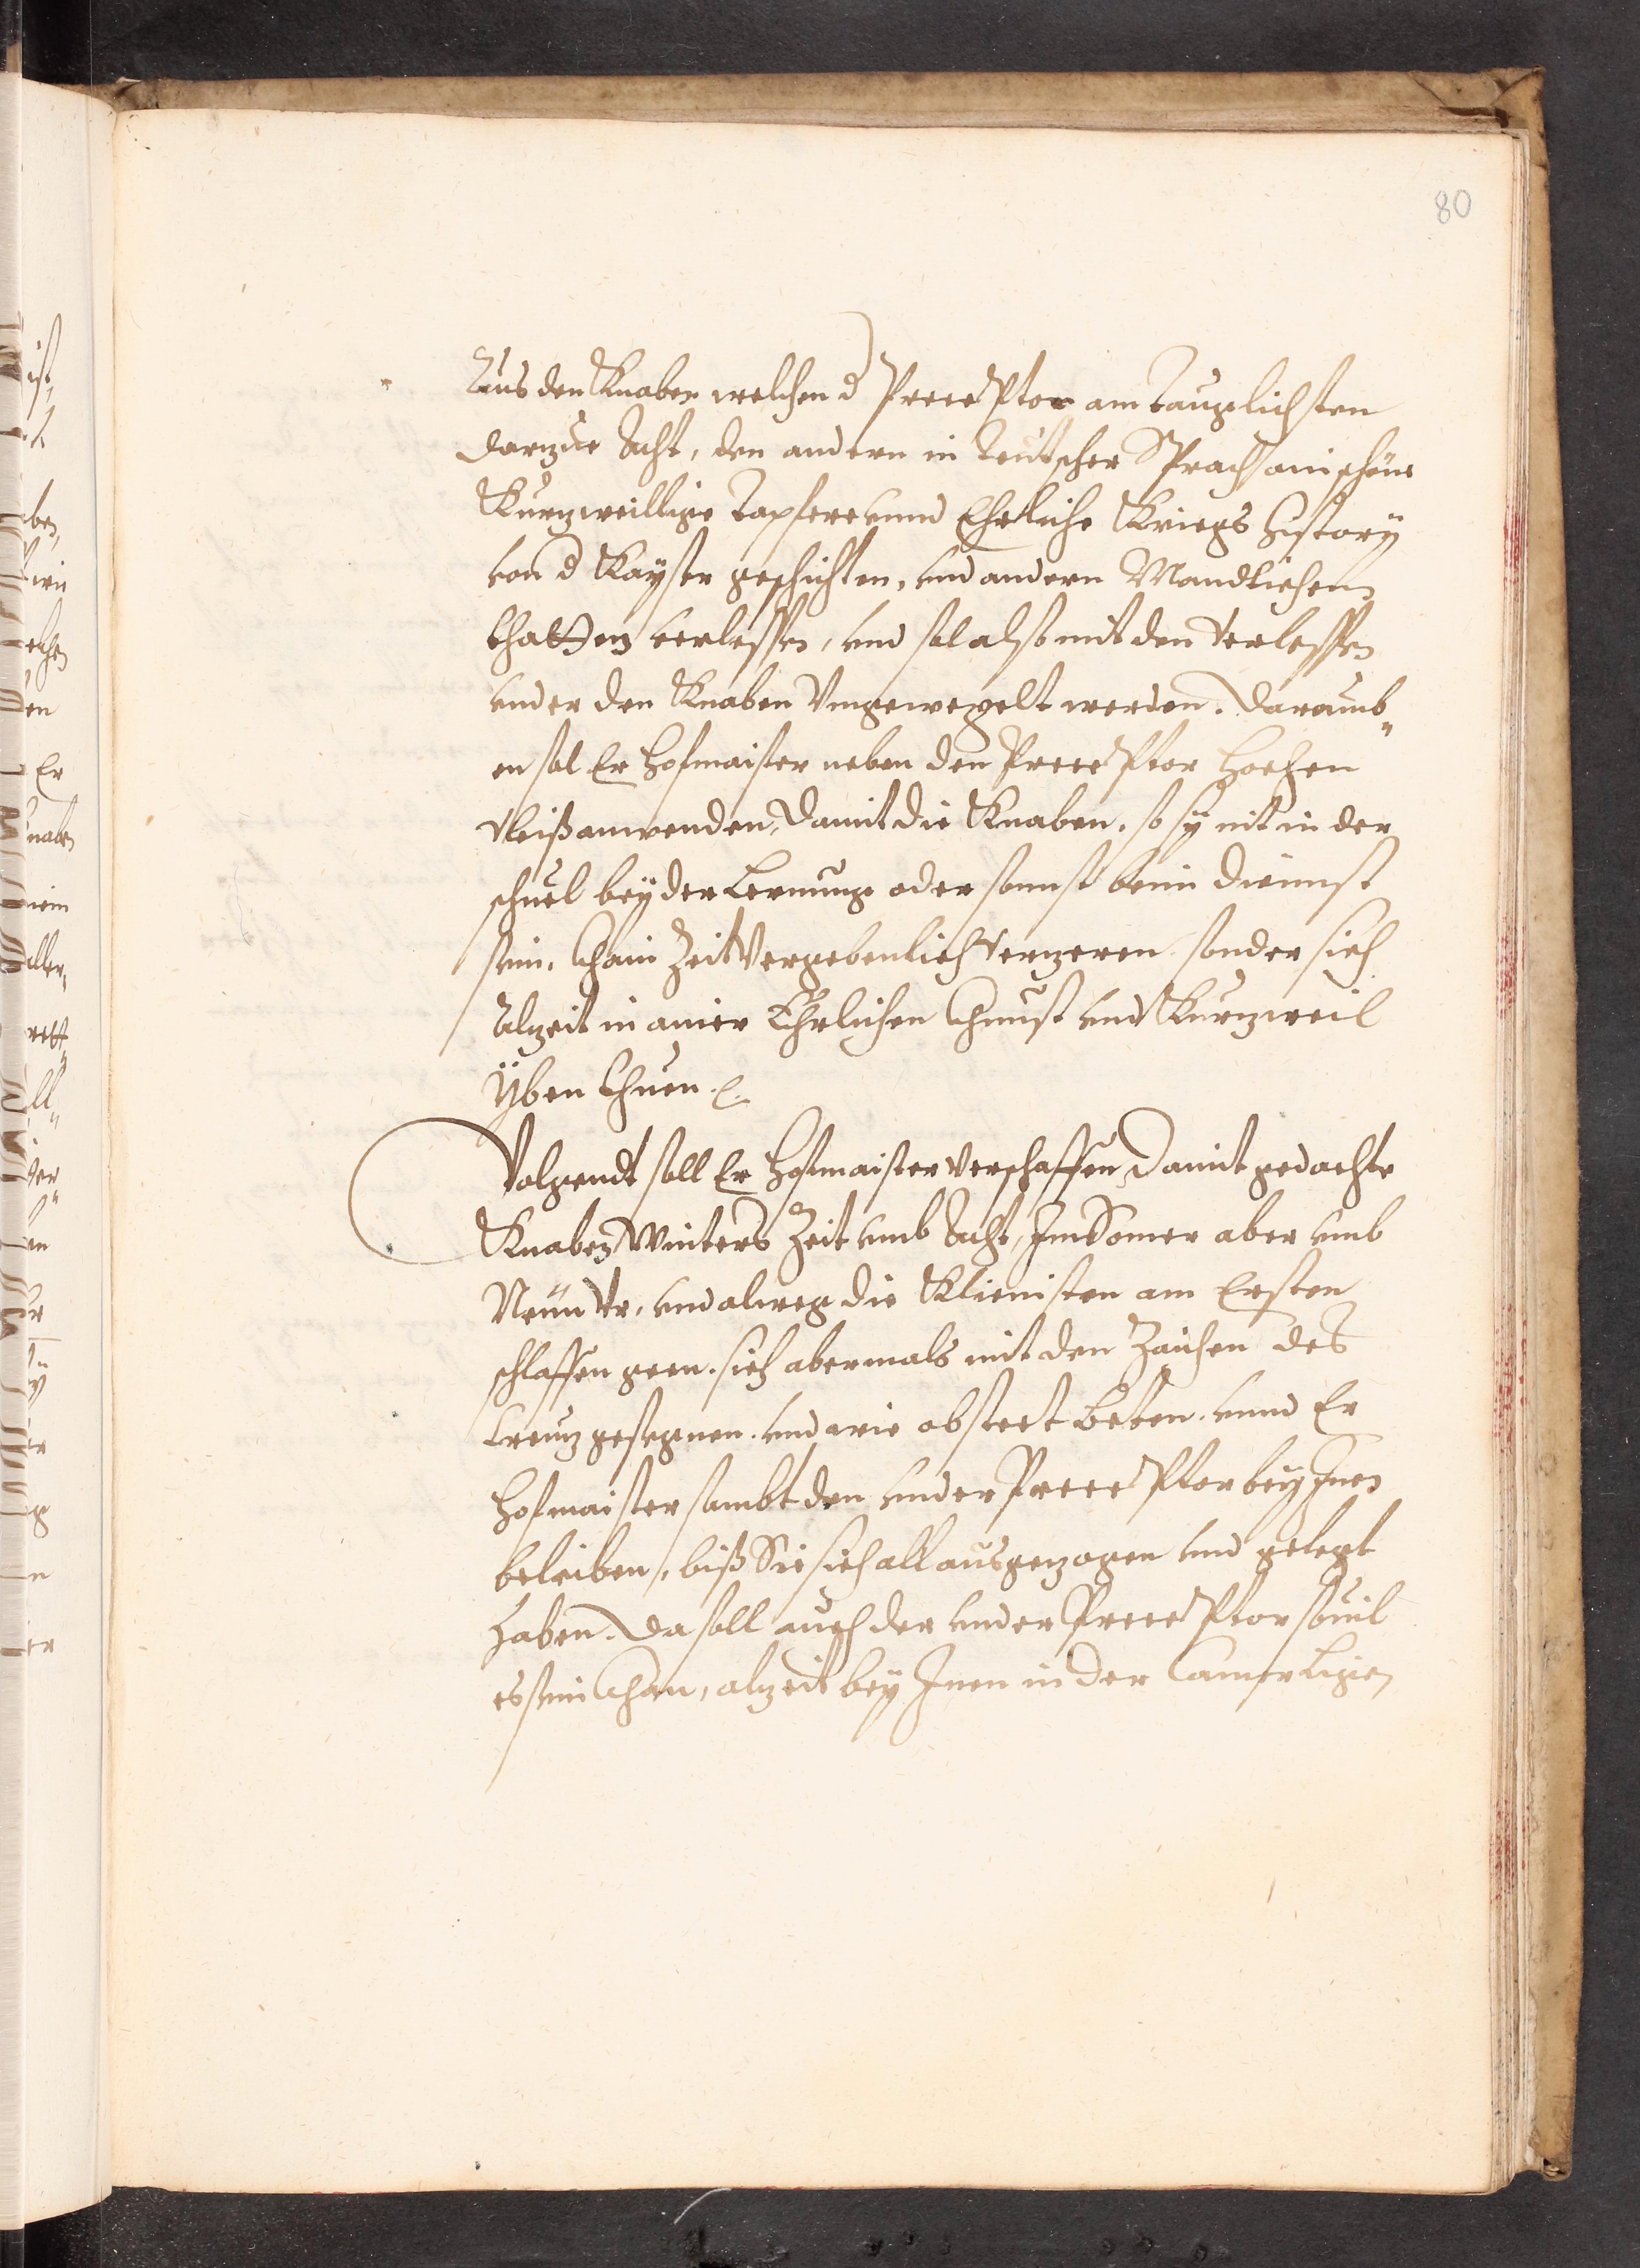 80
Aus den Knaben welchen d Preceptor am tauglichsten
darzue Acht, den andern in Teutscher Sprach ain schöne
Kurzweillige Tapfere unnd Ehrliche Kriegs History
von d Kayser geschichten, und andern Mandlichen
thatten verlessen, und sol also mit den Verlessen
under den Knaben Umgewexelt werden. Daraumb„
en sol Er Hofmaister neben den Preceptor hochen
Vleiß anwenden, Damit die Knaben, so sy nit in der
schuel bey der Lernung oder sonnst beim diennst
sein, Chain Zeit Vergebenlich Verzeren sonder sich
Alzeit in ainer Ehrlichen Chunst und Kurzweil
Üben thuen
Volgendt soll Er Hofmaister verschaffen, Damit gedachte
Knaben Winters Zeit umb Acht, Im Somer aber umb
Neun Ur, und alweg die Klienisten am Ersten
schlaffen geen. sich abermals mit den Zaichen des
Creuz gesegnen. und wie obsteet Beten. unnd Er
Hofmaister sambt den under Preceptor bey Inen
beleiben, biß Sie sich all ausgezogen und gelegt
haben. Da soll auch der under Preceptor souil
es sein Chan, alzeit bey Inen in der Camer ligen